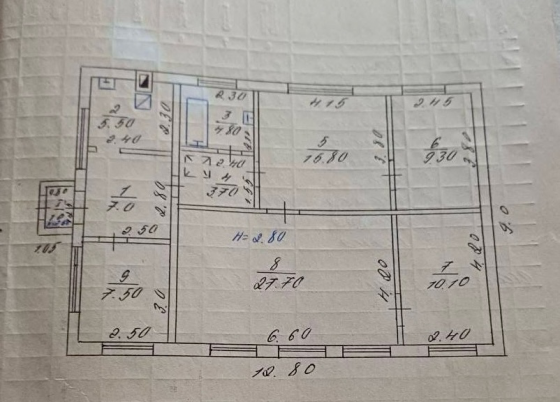 2
5.50
2.40
2.30
2.30
3
4.80
4.15
5
15.80
3.80
2.45
6
9.30
3.80
2.40
4
3.70
1.55
1
7.0
2.80
2.50
1.05
H=2.80
9
7.50
3.0
2.50
8
27.70
4.20
6.60
7
10.10
4.20
2.40
9.0
12.80